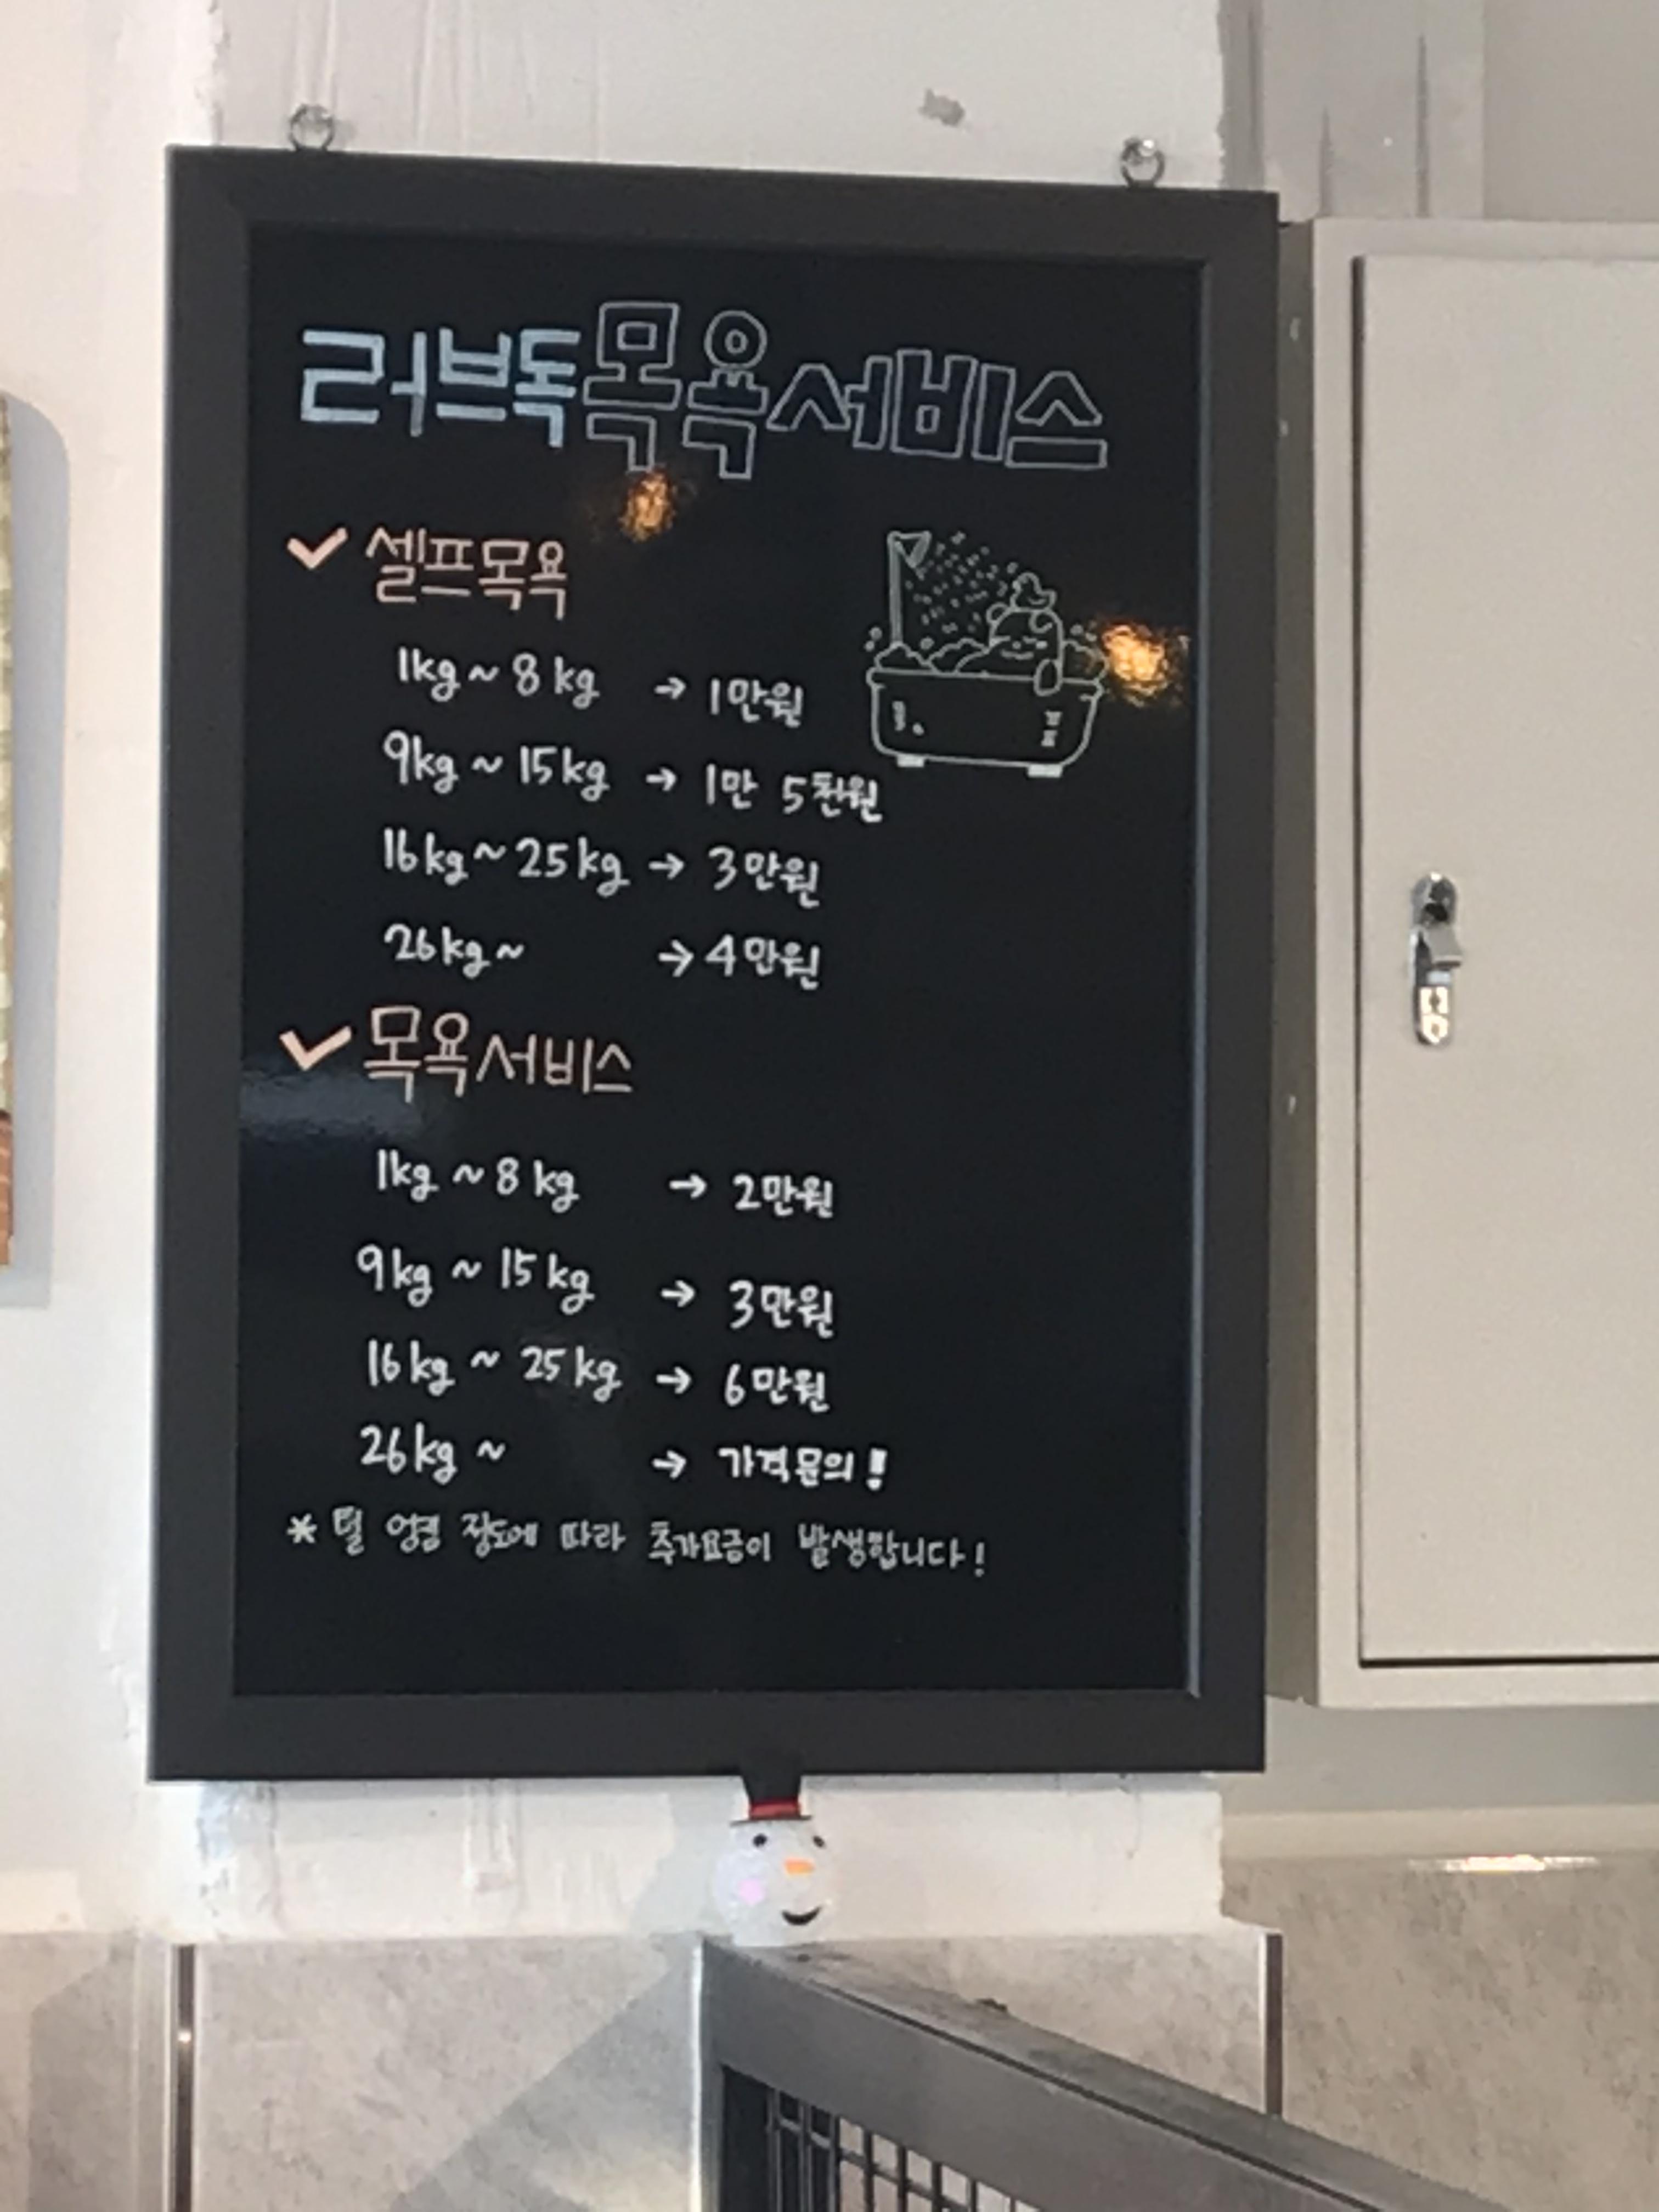 러브독목욕서비스
✓ 셀프목욕
1kg ~ 8kg → 1만원
9kg ~ 15kg → 1만 5천원
16kg ~ 25kg → 3만원
26kg ~ → 4만원
✓ 목욕서비스
1kg ~ 8kg → 2만원
9kg ~ 15kg → 3만원
16kg ~ 25kg → 6만원
26kg ~ → 가격문의!
* 털 엉킴 정도에 따라 추가요금이 발생합니다!